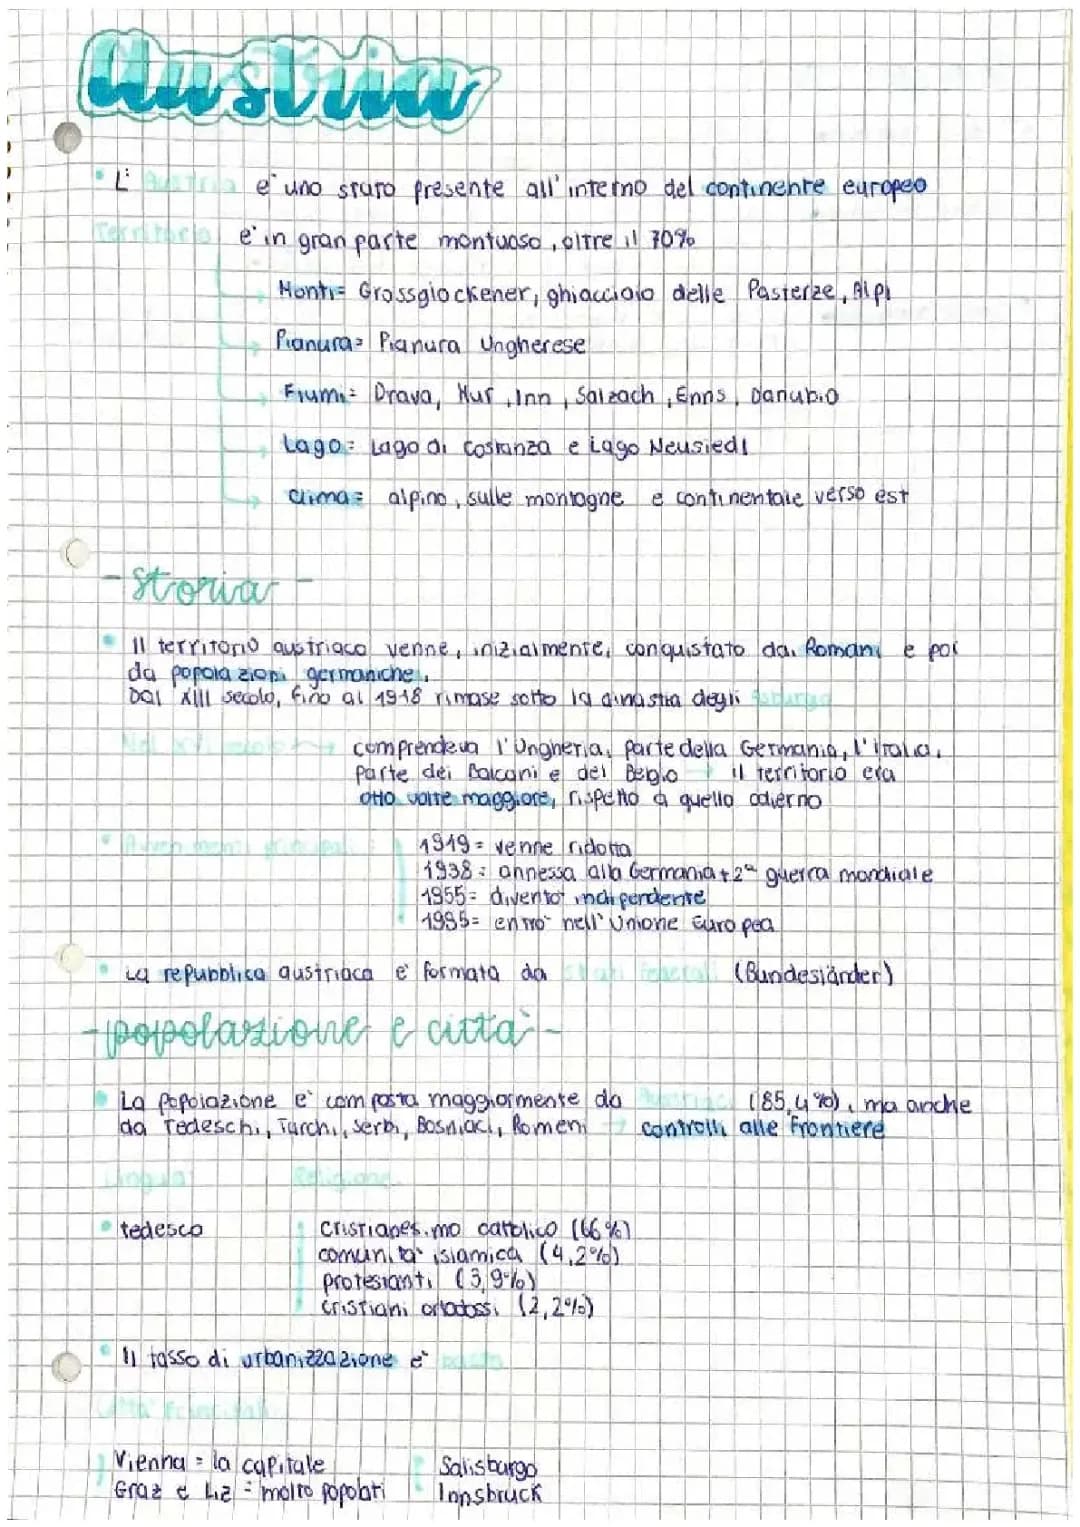 Austria
• L' Austria e' uno stato presente all'interno del continente europeo
Territorio e' in gran parte montuoso, oltre il 70%
Monti= Grossglockener, ghiacciaio delle Pasterze, Alpi
Pianura= Pianura Ungherese
Fiumi= Drava, Mur, Inn, Salzach, Enns, Danubio
Lago= Lago di Costanza e Lago Neusiedl
Clima= alpino, sulle montagne e continentale verso est
- storia -
• Il territorio austriaco venne, inizialmente, conquistato dai Romani e poi
da popolazioni germaniche.
Dal XIII secolo, fino al 1918 rimase sotto la dinastia degli Asburgo
Nel → comprendeva l'Ungheria, parte della Germania, l'Italia,
parte dei Balcani e del Belgio → il territorio era
otto volte maggiore, rispetto a quello odierno
• Avvenimenti principali:
1919= venne ridotta
1938= annessa alla Germania + 2ª guerra mondiale
1955= divento' indipendente
1995= entro' nell'Unione Europea
• La repubblica austriaca e' formata da stati federali (Bundesländer)
- popolazione e citta' -
• La popolazione e' composta maggiormente da Austriaci (85,4%), ma anche
da Tedeschi, Turchi, Serbi, Bosniaci, Romeni → controlli alle frontiere
Lingua: Religione:
• tedesco
cristianesimo cattolico (66%)
comunita' islamica (4,2%)
protestanti (3,9%)
cristiani ortodossi (2,2%)
• Il tasso di urbanizzazione e'
Citta' Principali
Vienna = la capitale
Graz e Liz = molto popolati
Salisburgo
Innsbruck